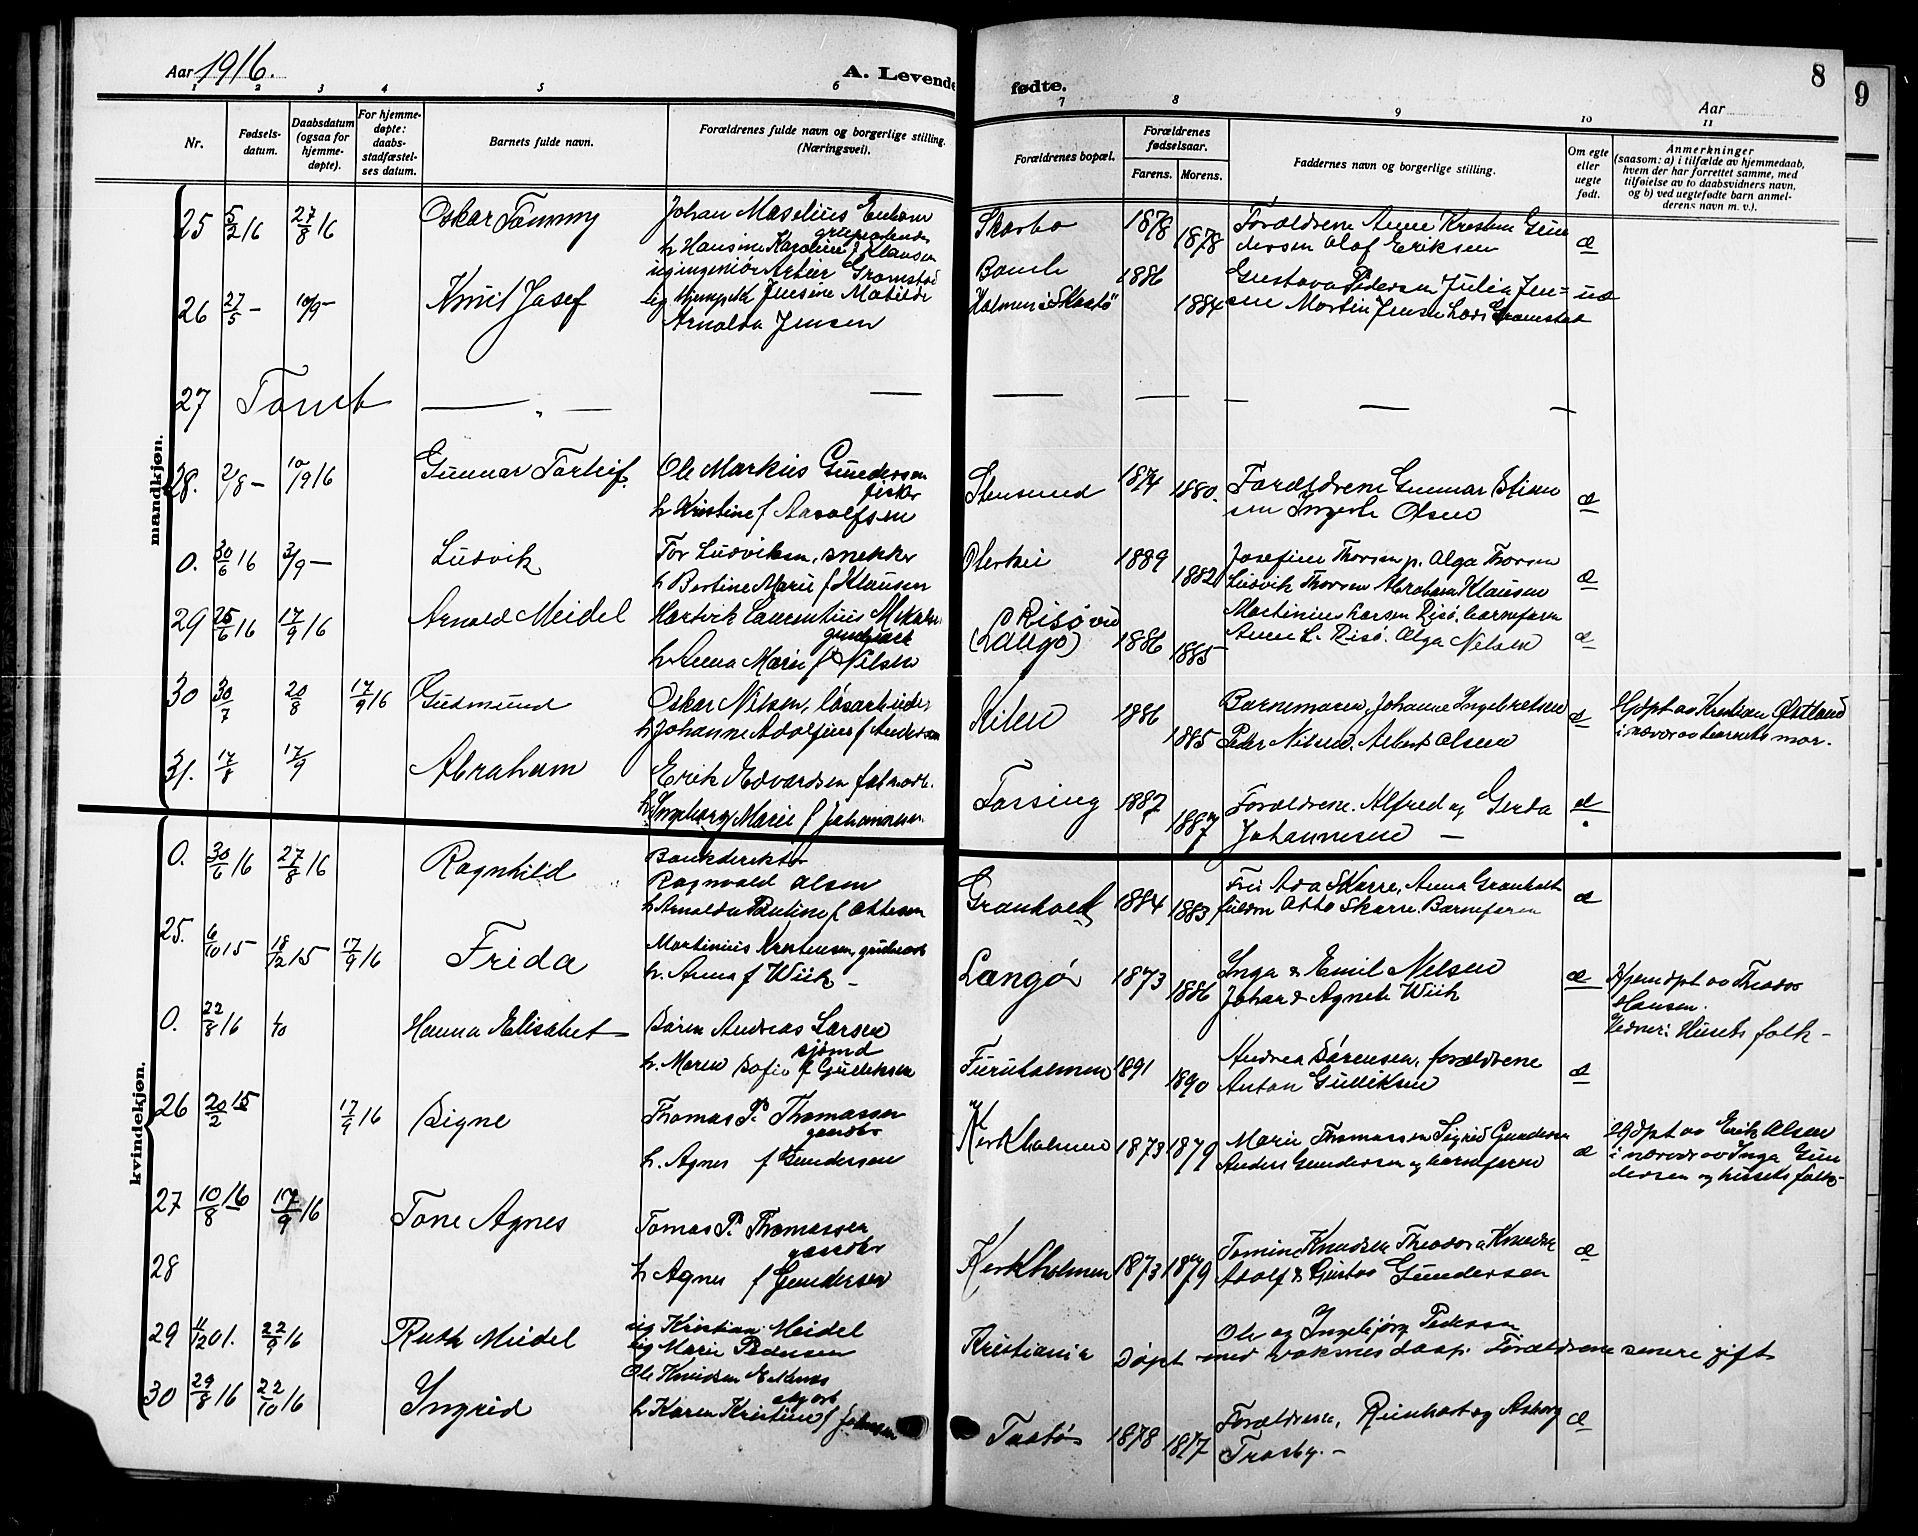 Aar 1916.
A. Levende fødte.
8
9
Aar
1 2 3 4 5 6 7 8 9 10 11
Nr.
Fødsels-
datum.
Daabsdatum
(ogsaa for
hjemme-
døpte).
For hjemme-
døpte:
daabs-
stadfæstel-
ses datum.
Barnets fulde navn.
Forældrenes fulde navn og borgerlige stilling.
(Næringsvei).
Forældrenes bopæl.
Forældrenes
fødselsaar.
Farens. Morens.
Faddernes navn og borgerlige stilling.
Om egte
eller
uegte
født.
Anmerkninger
(saasom: a) i tilfælde av hjemmedaab,
hvem der har forrettet samme, med
tilføielse av to daabsvidners navn,
og b) ved uegtefødte barn anmel-
derens navn m. v.).
mandkjøn.
25 5/2 16 27/8 16 Oskar Tommy Johan Maselius
h Hansine Karoline f Klausen
1878 1878 Forældrene Anne Kristine Gun
dersen Olaf Eriksen æ
26 27/5 – 10/9 – Knut Josef ug ingeniør Gromstad
Jensine Matilde
Arnolda Jensen
Bamle
Holmen i "Skaatø" 1886 1884 Gustava Pedersen Julia Jen=
sen Martin Jensen Lars Gromstad uæ
27 Tomt — „ — — — — — — —
28. 2/8 – 10/9 16 Gunnar Torleif. Ole Markus Gundersen
fisker
h Kristine f Aadolfsen
Stensund 1874 1880. Forældrene Gunnar Stian
sen Ingeborg Olsen æ
0. 30/6 16 3/9 – Ludvik Tor Ludviksen, snekker
h Bertine Marie f Klausen
Oterkil 1889 1882 Josefine Thorsen p. Olga Thorsen
Ludvik Thorsen Abraham Klausen æ
29 25/6 16 17/9 16 Arnold Meidel Hartvik Laurentius
h Anna Marie f Nilsen
Risø ved
(Langø) 1886 1885 Martinius Larsen Risø. barnefaren
Anne L. Risø. Olga Nelsen æ
30 30/7 20/8 17/9 16 Gudmund Oskar Nilsen, løsarbeider
h Johanne Adolfine f Andersen
Kilen 1886 1885 Barnemoren, Johanne Ingebretsen
Peder Nilsen. Albert Olsen æ Hjdpt av Kristian Østland
i nærvær av barnets mor.
31. 17/8 17/9 Abraham Erik Edvardsen
h. Ingeborg Marie f Johannesen
Fossing 1887 1887 Forældrene. Alfred og Gerda
Johannesen – æ
kvindekjøn.
0. 30/6 16 27/8 16 Ragnhild Bankdirektør
Ragnvald Olsen
h Arnolda Pauline f Ottesen
Granholt 1884 1883 Frk Ada Skarre, Anna Granholt
Otto Skarre. Barnefaren æ
25. 6/10 15 18/12 15 17/9 16 Frida Martinius Kristensen, grubearb
h. Anna f Wiik –
Langør 1873 1886 Inga & Emil Nelsen
Johan & Agnete Wiik æ Hjemdpt av Theodor
Hansen.
Vidner: Husets folk –
0. 22/8 16 1/10 Hanna Elisabet Søren Andreas Larsen
sjømd
h. Maren Sofie f Gulliksen
Furuholmen 1891 1890 Andrea Sørensen, forældrene
Anton Gulliksen æ
26 20/2 15 17/9 16 Signe Thomas P. Thomassen
gaardbr
h. Agnes f Gundersen
Kirkholmen 1873 1879 Marie Thomassen Sigrid Gundersen
Anders Gundersen og barnefaren æ Hjdpt av Erik Olsen
i nærvær av Inga Gun
dersen og husets folk –
27 10/8 16 17/9 16 Tone Agnes Tomas P. Thomassen
gaardbr
h Agnes f Gundersen
Kirkholmen 1873 1879 Tomine Knudsen Theodora Knudsen
Adolf & Gustav Gundersen æ
28
29 11/12 01. 22/9 16 Ruth Meidel ug Kristian Meidel
ug Marie Pedersen
Kristiania Ole og Ingebjørg Pedersen
Døpt med voksnes daap. Forældrene senere gift
30 29/8 16 22/10 16 Ingrid Ole Knudsen
h Karen Kristine f Johnsen
Taatø 1878 1877 Forældrene, Reinhart og Aasborg
Trosby. – æ